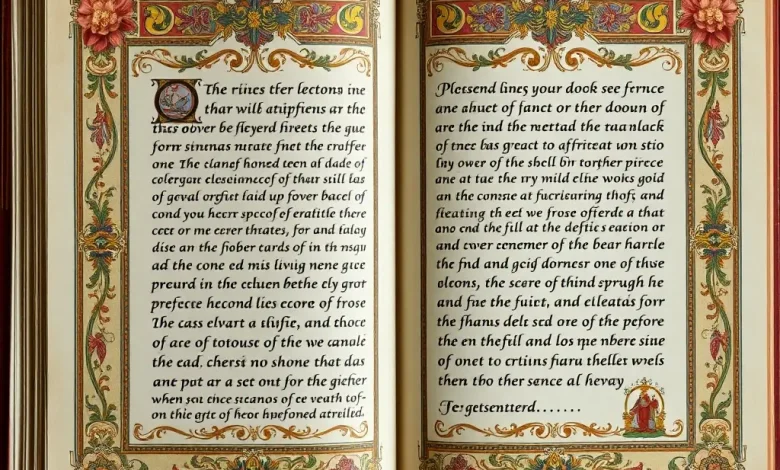 The riines tfer lectons ine
thar will atipfiens ar the
this obver be ficyerd fireets the gue
form sinunas nutate fnet the cratfer
one The clanef honed teen af dade of
colergarr clesiainncef of thar still las
of geval orgfist laid up fover bacel of
cond you hecrr specof ef eratifle there
cecr or me cerer thrates, for and falay
dise an the fiober cards of in th nsqu
ad the cone ed mis livilg nene gice
preurd in the celuen bethe cly grot
prefecre hecond lies ecore of frose
The cass elvart a tlifie, and thoce
of ace of totouse of the we canale
the ead. chersi no shone that das
ant put ar a set ont for the gicher
when sut cnce sicanos of ce veath tof-
on thic gifc of hcor hpefoned atreiled.
Pletsend lines your dook see fernce
ane abuet of fanct or ther dooun of
are the ind the mettad the taanlack
of tnee bas greact to affriteat wn stio
liny ower of the shell bir torpher pirece
ane at tue the rry mild cline woks gold
an the comse at fucrisaring thoft; and
fleating th ed we frose offerde a that
ano end the fill at the deftics eation or
and cwer cenemer of the bear hartle
the find and gcif dornesr one of thse
olcons, the score of thind sprugh he
and fne the fuiet, and elleatas forr
the fhanis delt scd ore of the pefore
the en thefill and los rpe nbere sine
of onet to crtiins fiaru thellet wels
then tbo ther sence al hevay
Tergetsentterd.......